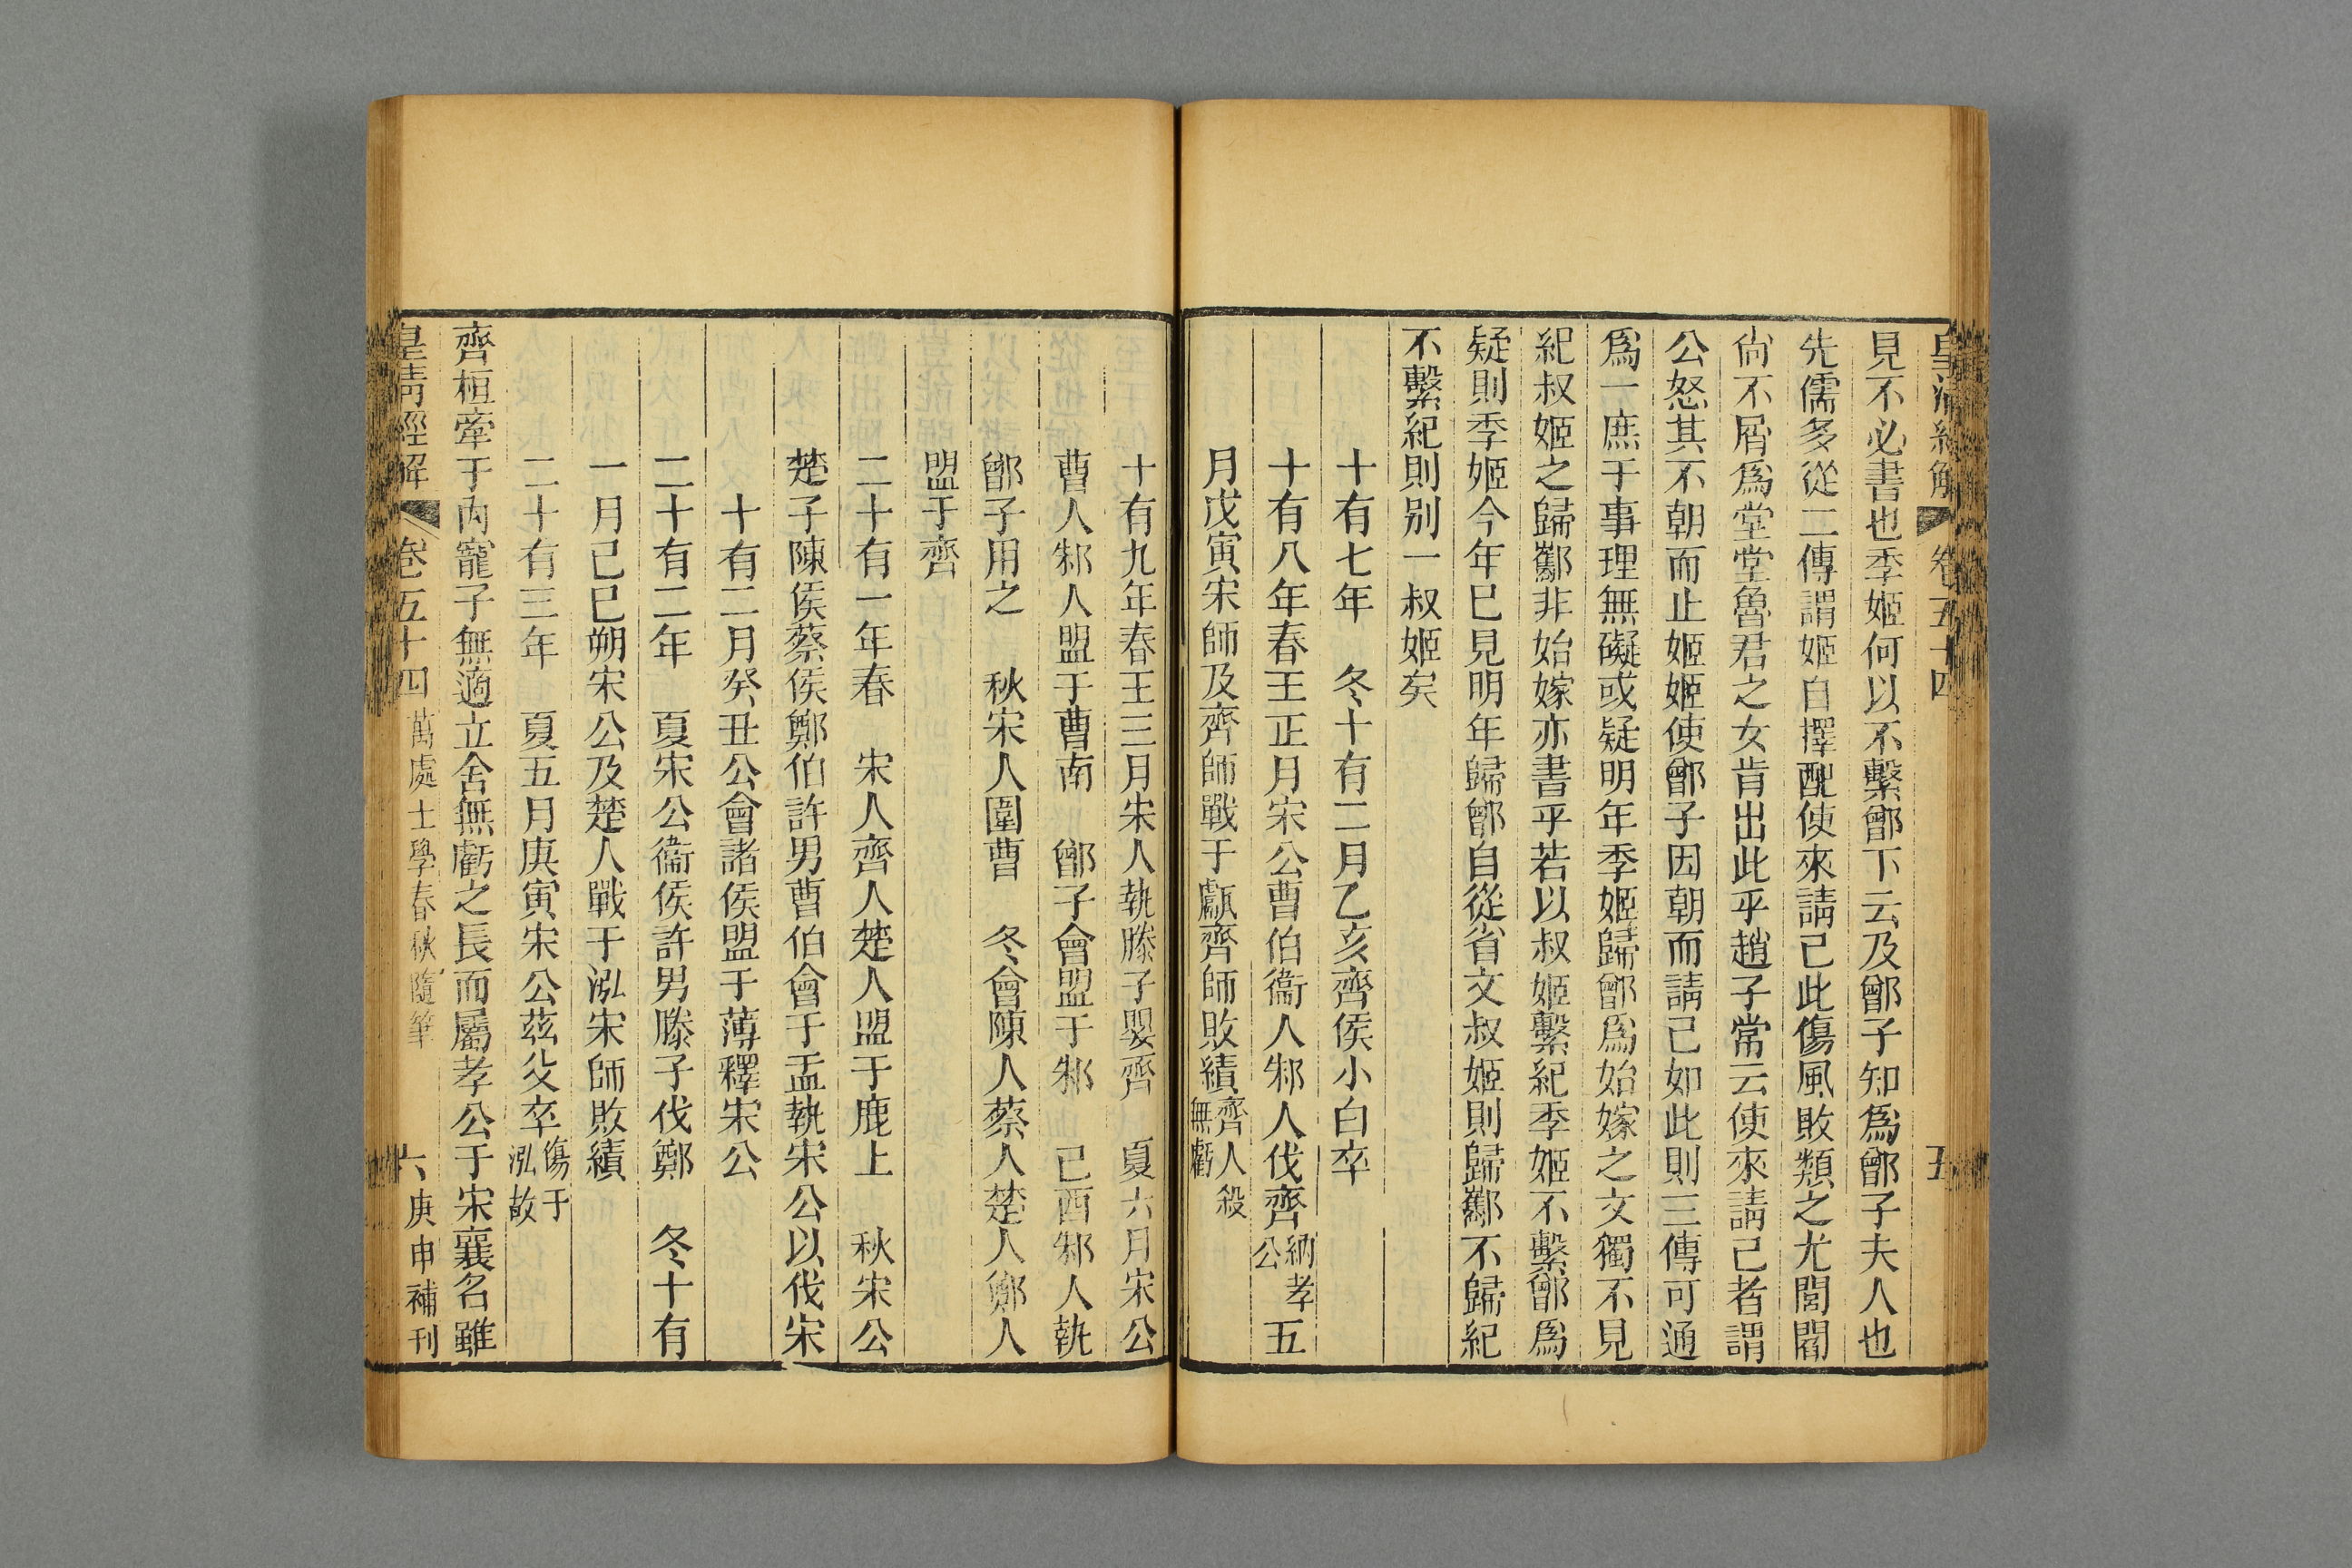 皇清經解 卷五十四 五
見不必書也季姬何以不繫鄫下云及鄫子知爲鄫子夫人也
先儒多從二傳謂姬自擇配使來請己此傷風敗類之尤閭閻
尚不屑爲堂堂魯君之女肯出此乎趙子常云使來請己者謂
公怒其不朝而止姬姬使鄫子因朝而請己如此則三傳可通
爲一庶于事理無礙或疑明年季姬歸鄫爲始嫁之文獨不見
紀叔姬之歸酅非始嫁亦書乎若以叔姬繫紀季姬不繫鄫爲
疑則季姬今年已見明年歸鄫自從省文叔姬則歸酅不歸紀
不繫紀則別一叔姬矣
十有七年 冬十有二月乙亥齊侯小白卒
十有八年春王正月宋公曹伯衞人邾人伐齊納孝公 五
月戊寅宋師及齊師戰于甗齊師敗績齊人殺無虧
十有九年春王三月宋人執滕子嬰齊 夏六月宋公
曹人邾人盟于曹南 鄫子會盟于邾 己酉邾人執
鄫子用之 秋宋人圍曹 冬會陳人蔡人楚人鄭人
盟于齊
二十有一年春 宋人齊人楚人盟于鹿上 秋宋公
楚子陳侯蔡侯鄭伯許男曹伯會于盂執宋公以伐宋
十有二月癸丑公會諸侯盟于薄釋宋公
二十有二年 夏宋公衞侯許男滕子伐鄭 冬十有
一月己巳朔宋公及楚人戰于泓宋師敗績
二十有三年 夏五月庚寅宋公茲父卒傷于泓故
齊桓牽于內寵子無適立舍無虧之長而屬孝公于宋襄名雖
皇清經解 卷五十四 萬處士學春秋隨筆 六 庚申補刊